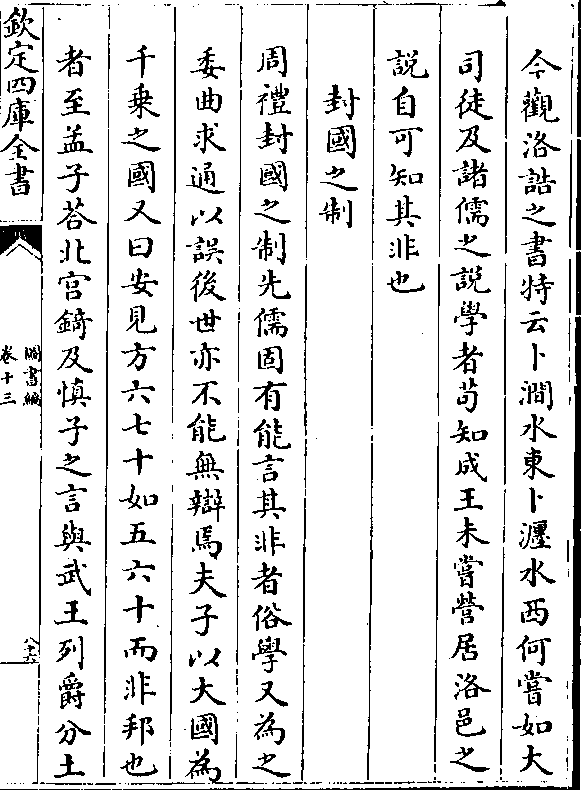 今觀洛誥之書特云卜澗水東卜瀍水西何嘗如大
司徒及諸儒之說學者苟知成王未嘗營居洛邑之
說自可知其非也
封國之制
周禮封國之制先儒固有能言其非者俗學又為之
委曲求通以誤後世亦不能無辯焉夫子以大國為
千乗之國又曰安見方六七十如五六十而非邦也
者至孟子荅北宫錡及慎子之言與武王列爵分土
欽定四庫全書
圖書編
卷十三